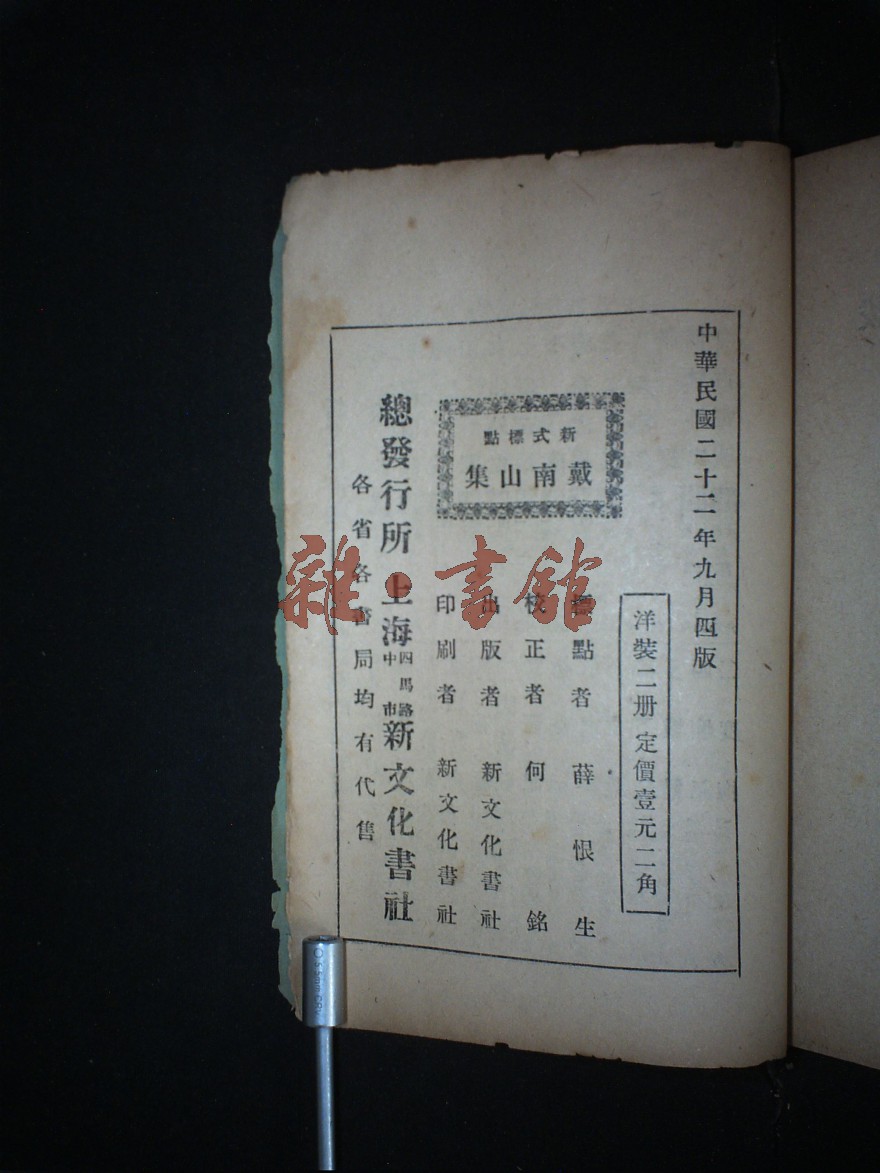 中華民國二十二年九月四版
洋裝二册 定價壹元二角
新式標點
戴南山集
標點者 薛恨生
校正者 何銘
出版者 新文化書社
印刷者 新文化書社
總發行所 上海 四馬路中市 新文化書社
各省各書局均有代售
雜·書館